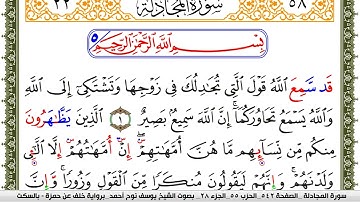 ٥٨ سُورَةُ المُجَادلَة ٢٢
بِسْمِ ٱللَّهِ ٱلرَّحْمَٰنِ ٱلرَّحِيمِ ٥
قَد سَّمِعَ ٱللَّهُ قَوْلَ ٱلَّتِى تُجَٰدِلُكَ فِى زَوْجِهَا وَتَشْتَكِىٓ إِلَى ٱللَّهِ
وَٱللَّهُ يَسْمَعُ تَحَاوُرَكُمَآۚ إِنَّ ٱللَّهَ سَمِيعٌۢ بَصِيرٌ ١ ٱلَّذِينَ يَظَّٰهَرُونَ
مِنكُم مِّن نِّسَآئِهِم مَّا هُنَّ أُمَّهَٰتِهِمْۖ إِنْ أُمَّهَٰتُهُمْ إِلَّا ٱلَّٰٓـِٔى
وَلَدْنَهُمْۚ وَإِنَّهُمْ لَيَقُولُونَ مُنكَرًا مِّنَ ٱلْقَوْلِ وَزُورًاۚ وَإِنَّ
سورة المجادلة . الصفحة ٥٤٢ الحزب ٥٥ الجزء ٢٨ . بصوت الشيخ يوسف نوح أحمد برواية خلف عن حمزة - بالسكت